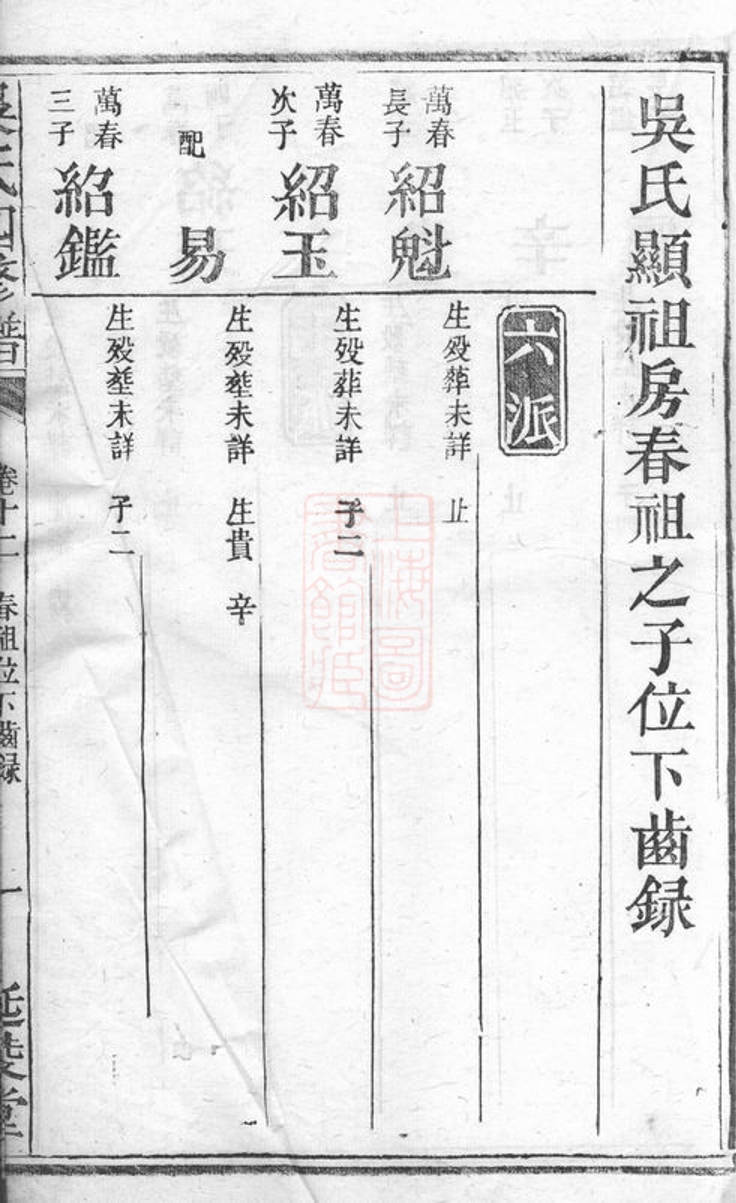 吳氏顯祖房春祖之子位下齒録
六派
萬春
長子
紹魁
生殁葬未詳 止
萬春
次子
紹玉
生殁葬未詳 子二
配
易
生殁塟未詳 生貴 辛
萬春
三子
紹鑑
生殁塟未詳 子二
吳氏四修譜
卷十二 春祖位下齒録
一
延陵堂
上海圖
書館藏